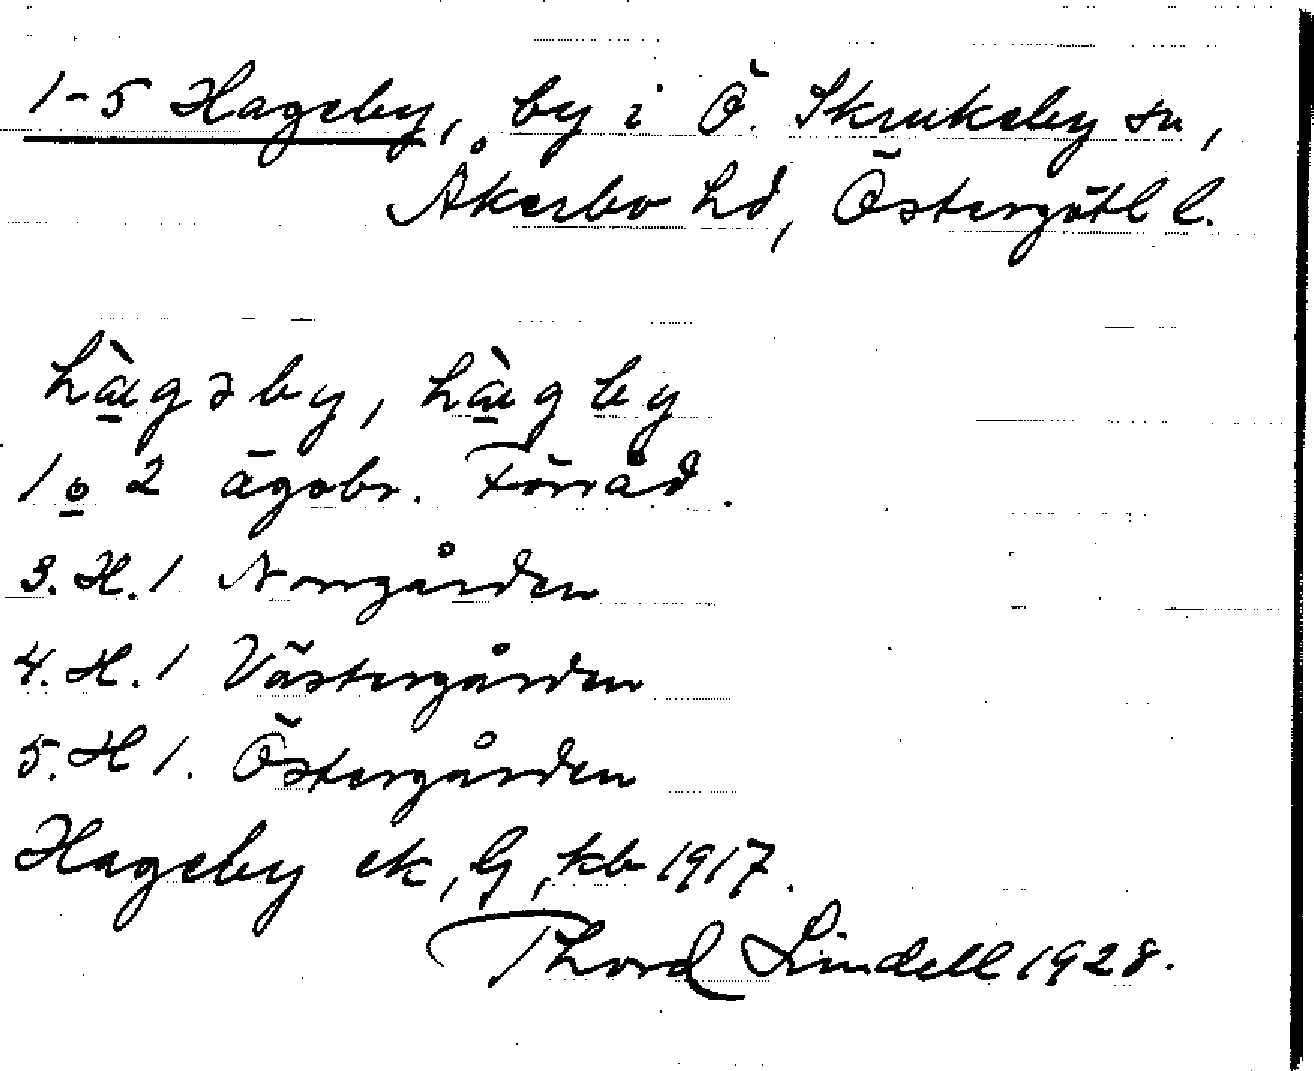 1-5 Hageby, by i Ö. Skrukeby sn,
Åkerbo hd, Östergötl l.
hàgəby, hàgby
1 o 2 ägobr. Förråd.
3. H. 1 Norrgården
4. H. 1 Västergården
5. H 1. Östergården
Hageby ek, G, kb 1917.
Thord Lindell 1928.